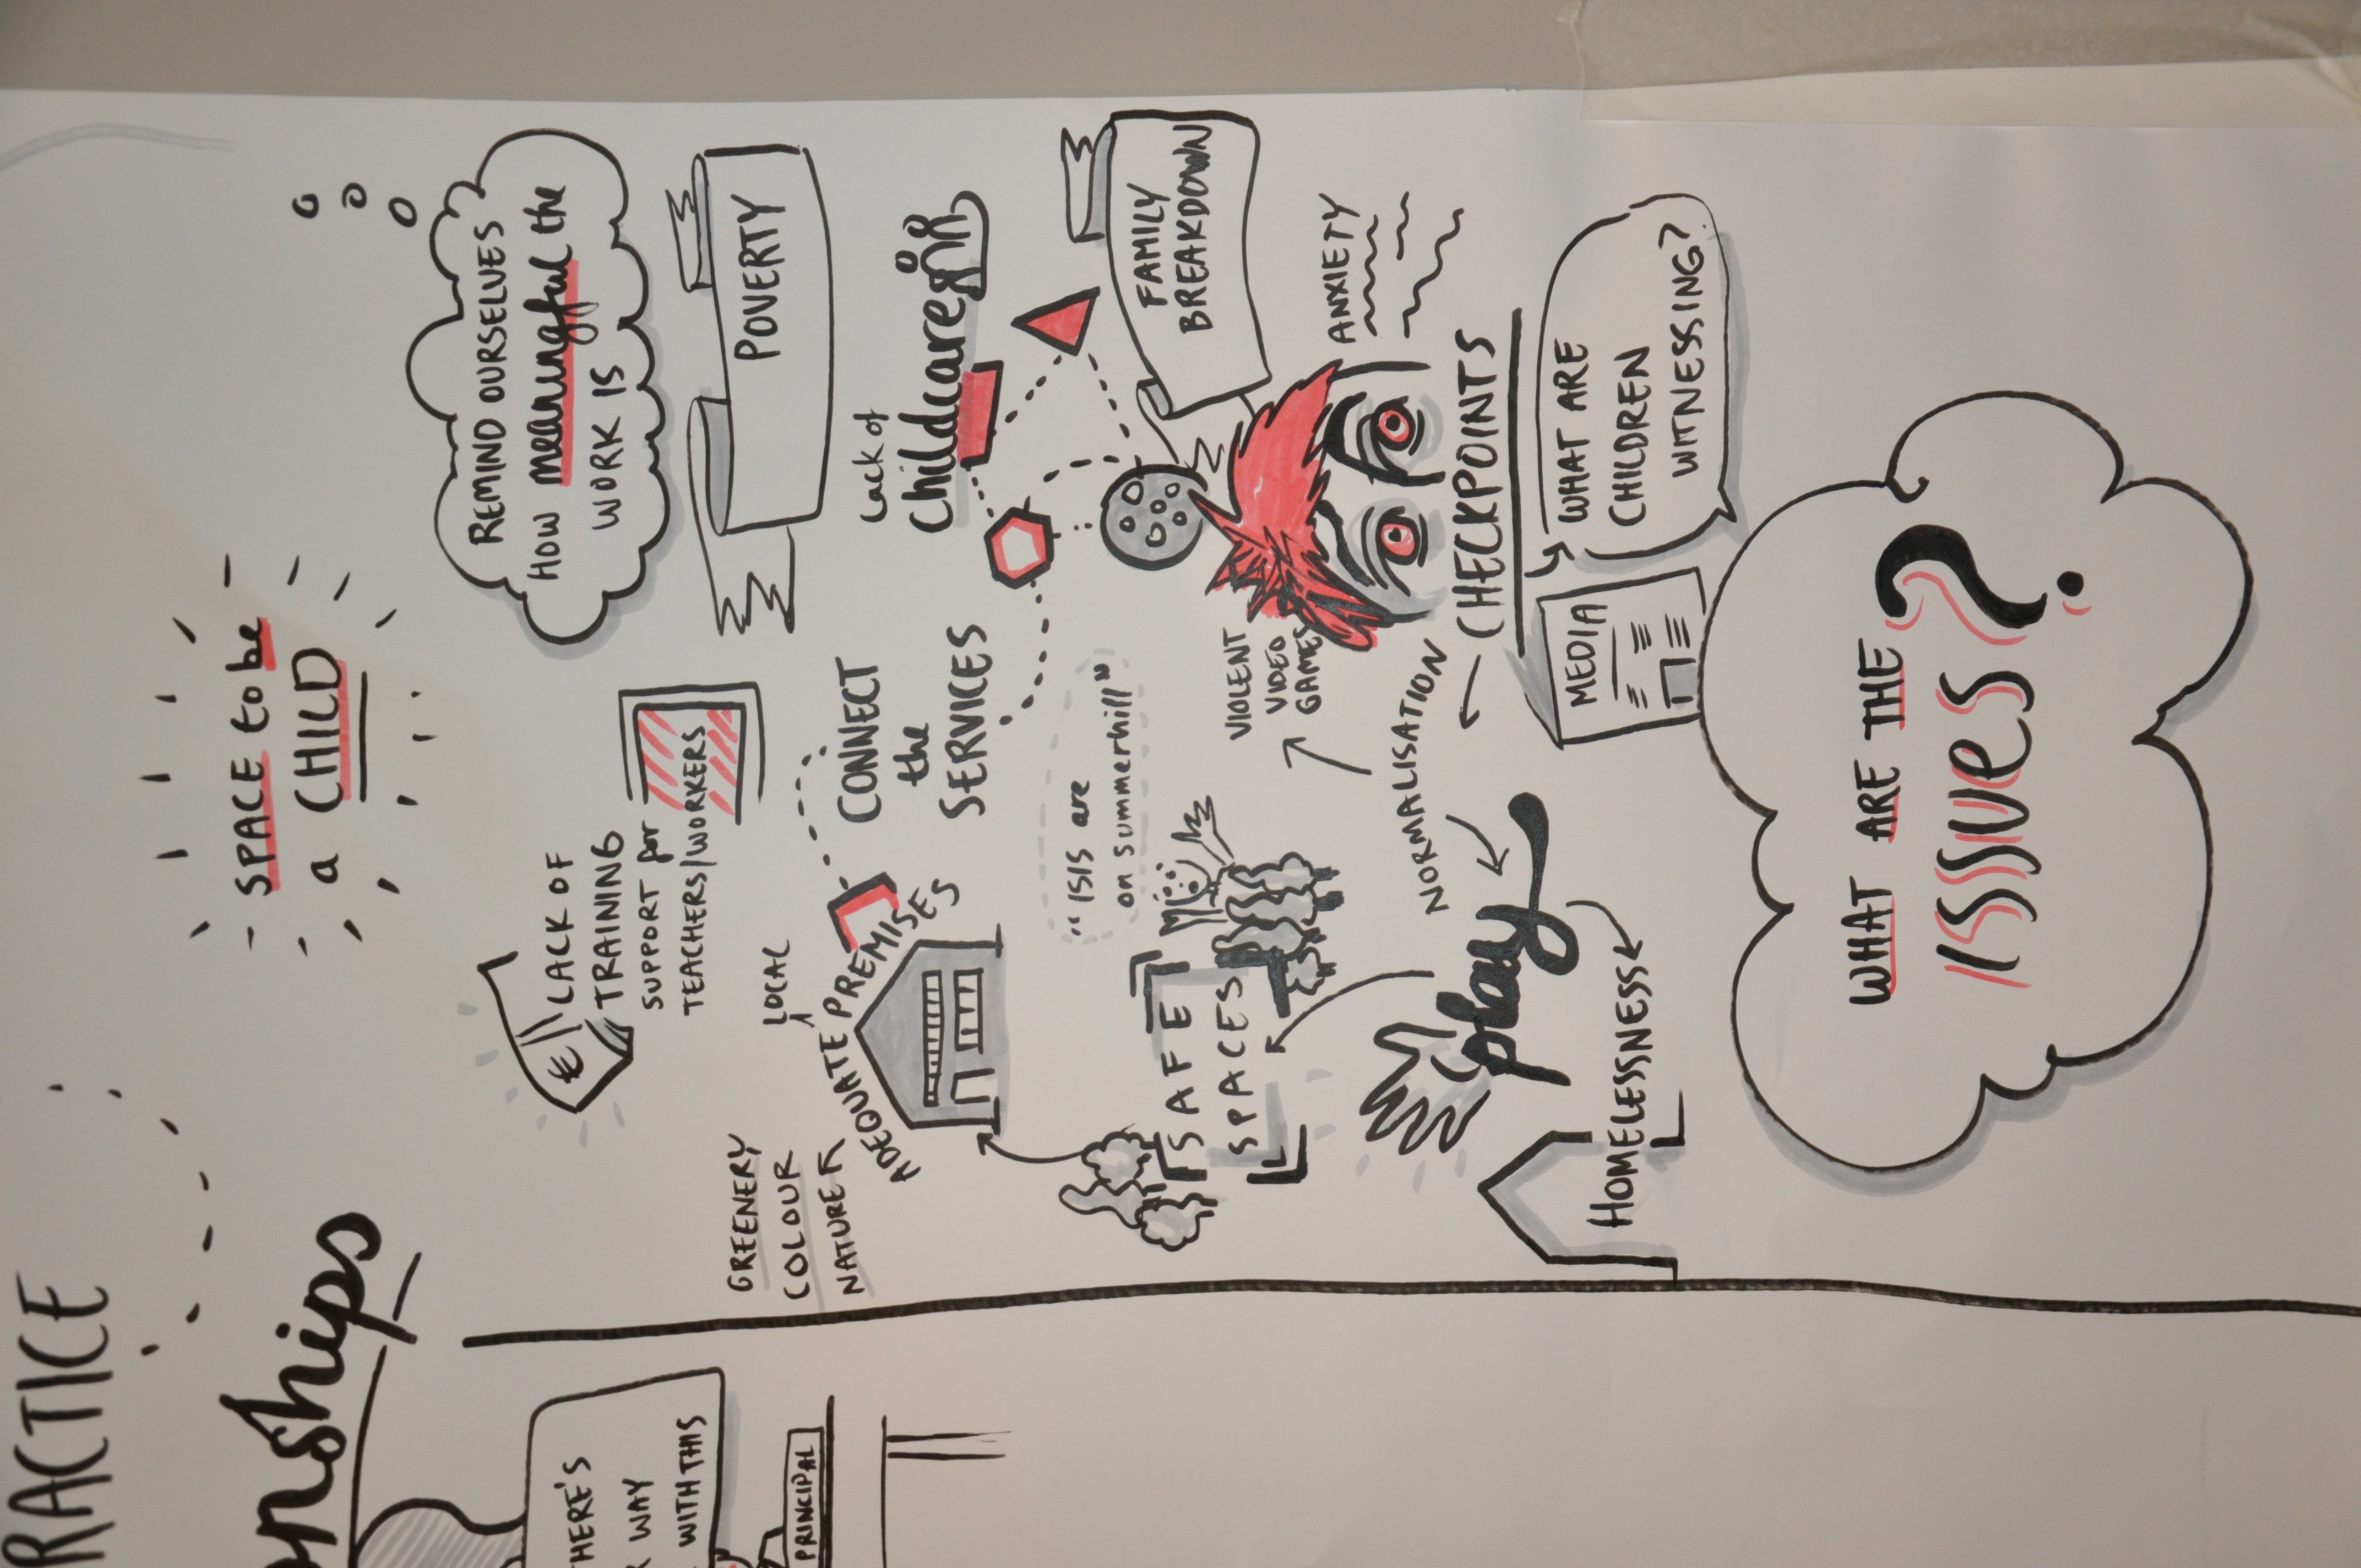 RACTICE
nships
HERE'S
WAY
WITH THIS
PRINCIPAL
SPACE to be
a CHILD
REMIND OURSELVES
HOW meaningful the
WORK IS
POVERTY
€
LACK OF
TRAINING
SUPPORT for
TEACHERS/WORKERS
Lack of
Childcare
CONNECT
the
SERVICES
GREENERY
COLOUR
NATURE
LOCAL
ADEQUATE PREMISES
"ISIS are
on Summerhill"
FAMILY
BREAKDOWN
SAFE
SPACES
VIOLENT
VIDEO
GAMES
ANXIETY
NORMALISATION
CHECKPOINTS
play
HOMELESSNESS
MEDIA
WHAT ARE
CHILDREN
WITNESSING?
WHAT ARE THE
ISSUES?